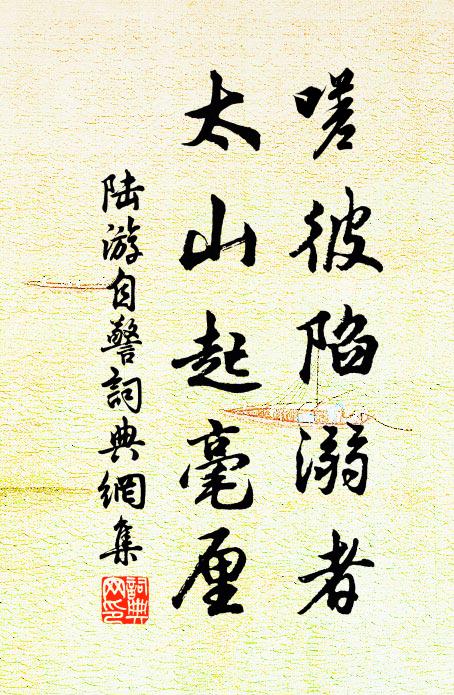 嗟彼陷溺者
太山起毫厘
陆游自警詞典網集
詞典
网印